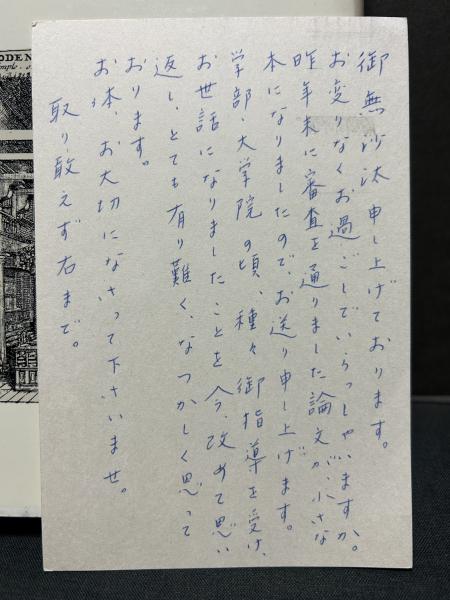 御無沙汰申し上げております。
お変りなくお過ごしでいらっしゃいますか。
昨年末に審査を通りました論文が、小さな
本になりましたので、お送り申し上げます。
学部・大学院の頃、種々御指導を受け、
お世話になりましたことを今、改めて思い
返し、とても有り難く、なつかしく思って
おります。
お体、お大切になさって下さいませ。
取り敢えず右まで。
ODEN